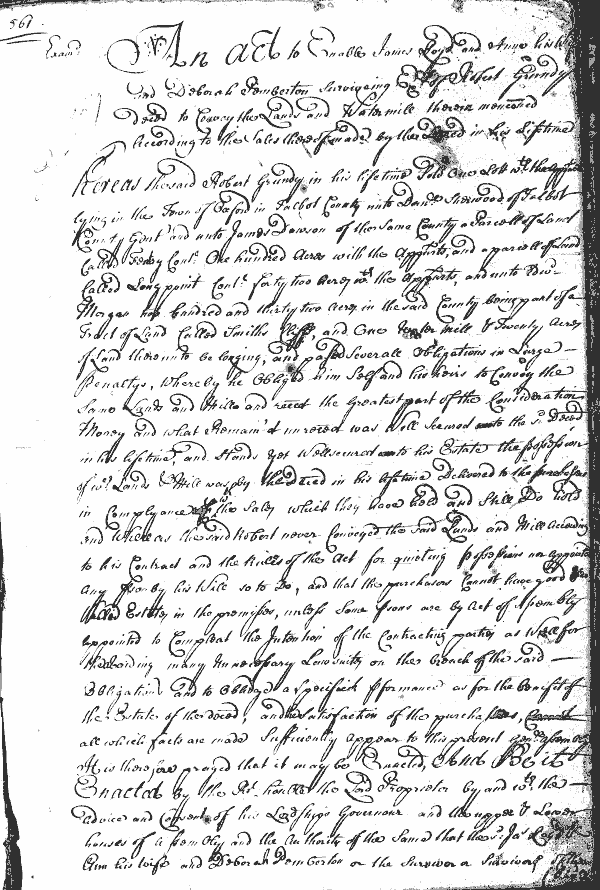 561.
Exam.d
An act to Enable James Loyd and Anne his Wife
and Deborah Pemberton Surviveing Ex.rs of Robert Grundy
Deced to Convey the Lands and Watermill therein menconed
According to the Sales thereof made by the Deced in his Lifetime
Whereas the said Robert Grundy in his lifetime Sold One Lott w.th the Appurts
lying in the Town of Oxford in Talbot County unto Dan.l Sherwood of Talbot
County Gent and unto James Dawson of the Same County a Parcell of Land
Called Cont.g One hundred Acres with the Appurts, and a parcell of Land
Called Long point Cont.g forty two Acres w.th the Appurts, and unto Edw.d
Morgan hundred and thirty two Acres in the said County being part of a
Tract of Land Called Smiths Clifts, and One Water Mill & Twenty Acres
of Land thereunto belonging, and passed Severall Obligations in Large
Penaltys, whereby he Obliged him Self and his heirs to Convey the
Same Lands and Mills and reced the Greatest part of the Consideration
Money and what Remain'd unreced was well Secured unto the s.d Deced
in his lifetime, and Stands yet Well secured unto his Estate the possession
of w.ch Lands & Mill was by the deced in his lifetime Delivered to the purchasers
in Complyance the Sales which they have held and Still Do hold
and Whereas the said Robert never Conveyed the said Lands and Mill According
to his Contract and the Rules of the Act for quieting possessions nor appointed
any pson by his Will so to Do, and that the purchasers Cannot have good
Estates in the premises, unless Some psons are by Act of Assembly
appointed to Compleat the Intention of the Contracting parties as Well for
the Avoiding many Unnecessary Lawsuits on the breach of the said
Obligations and to Obliedge a Specifick pformance as for the benefit of
the Estate of the deced, and the Satisfaction of the purchasers,
all which facts are made Sufficiently appear to this present Gen.ll Assembly
It is therefore prayed that it may be Enacted, And Be it
Enacted by the R.t hon.ble the Lord Proprietor by and w.th the
Advice and Consent of his Lordships Governour and the upper & Lower
houses of Assembly and the Authority of the Same that the s.d Ja.s Loyd &
Ann his wife and Deborah Pemberton or the Survivor or Survivors of them